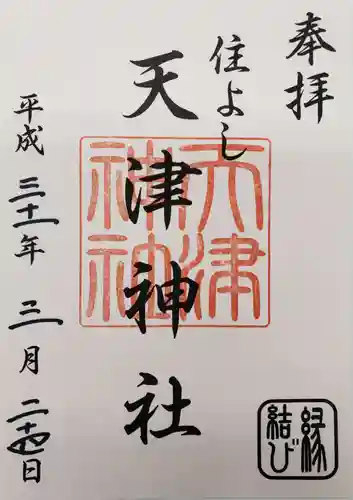 奉拝
住よし
天津神社
天津神社
平成三十一年三月二十四日
縁結び